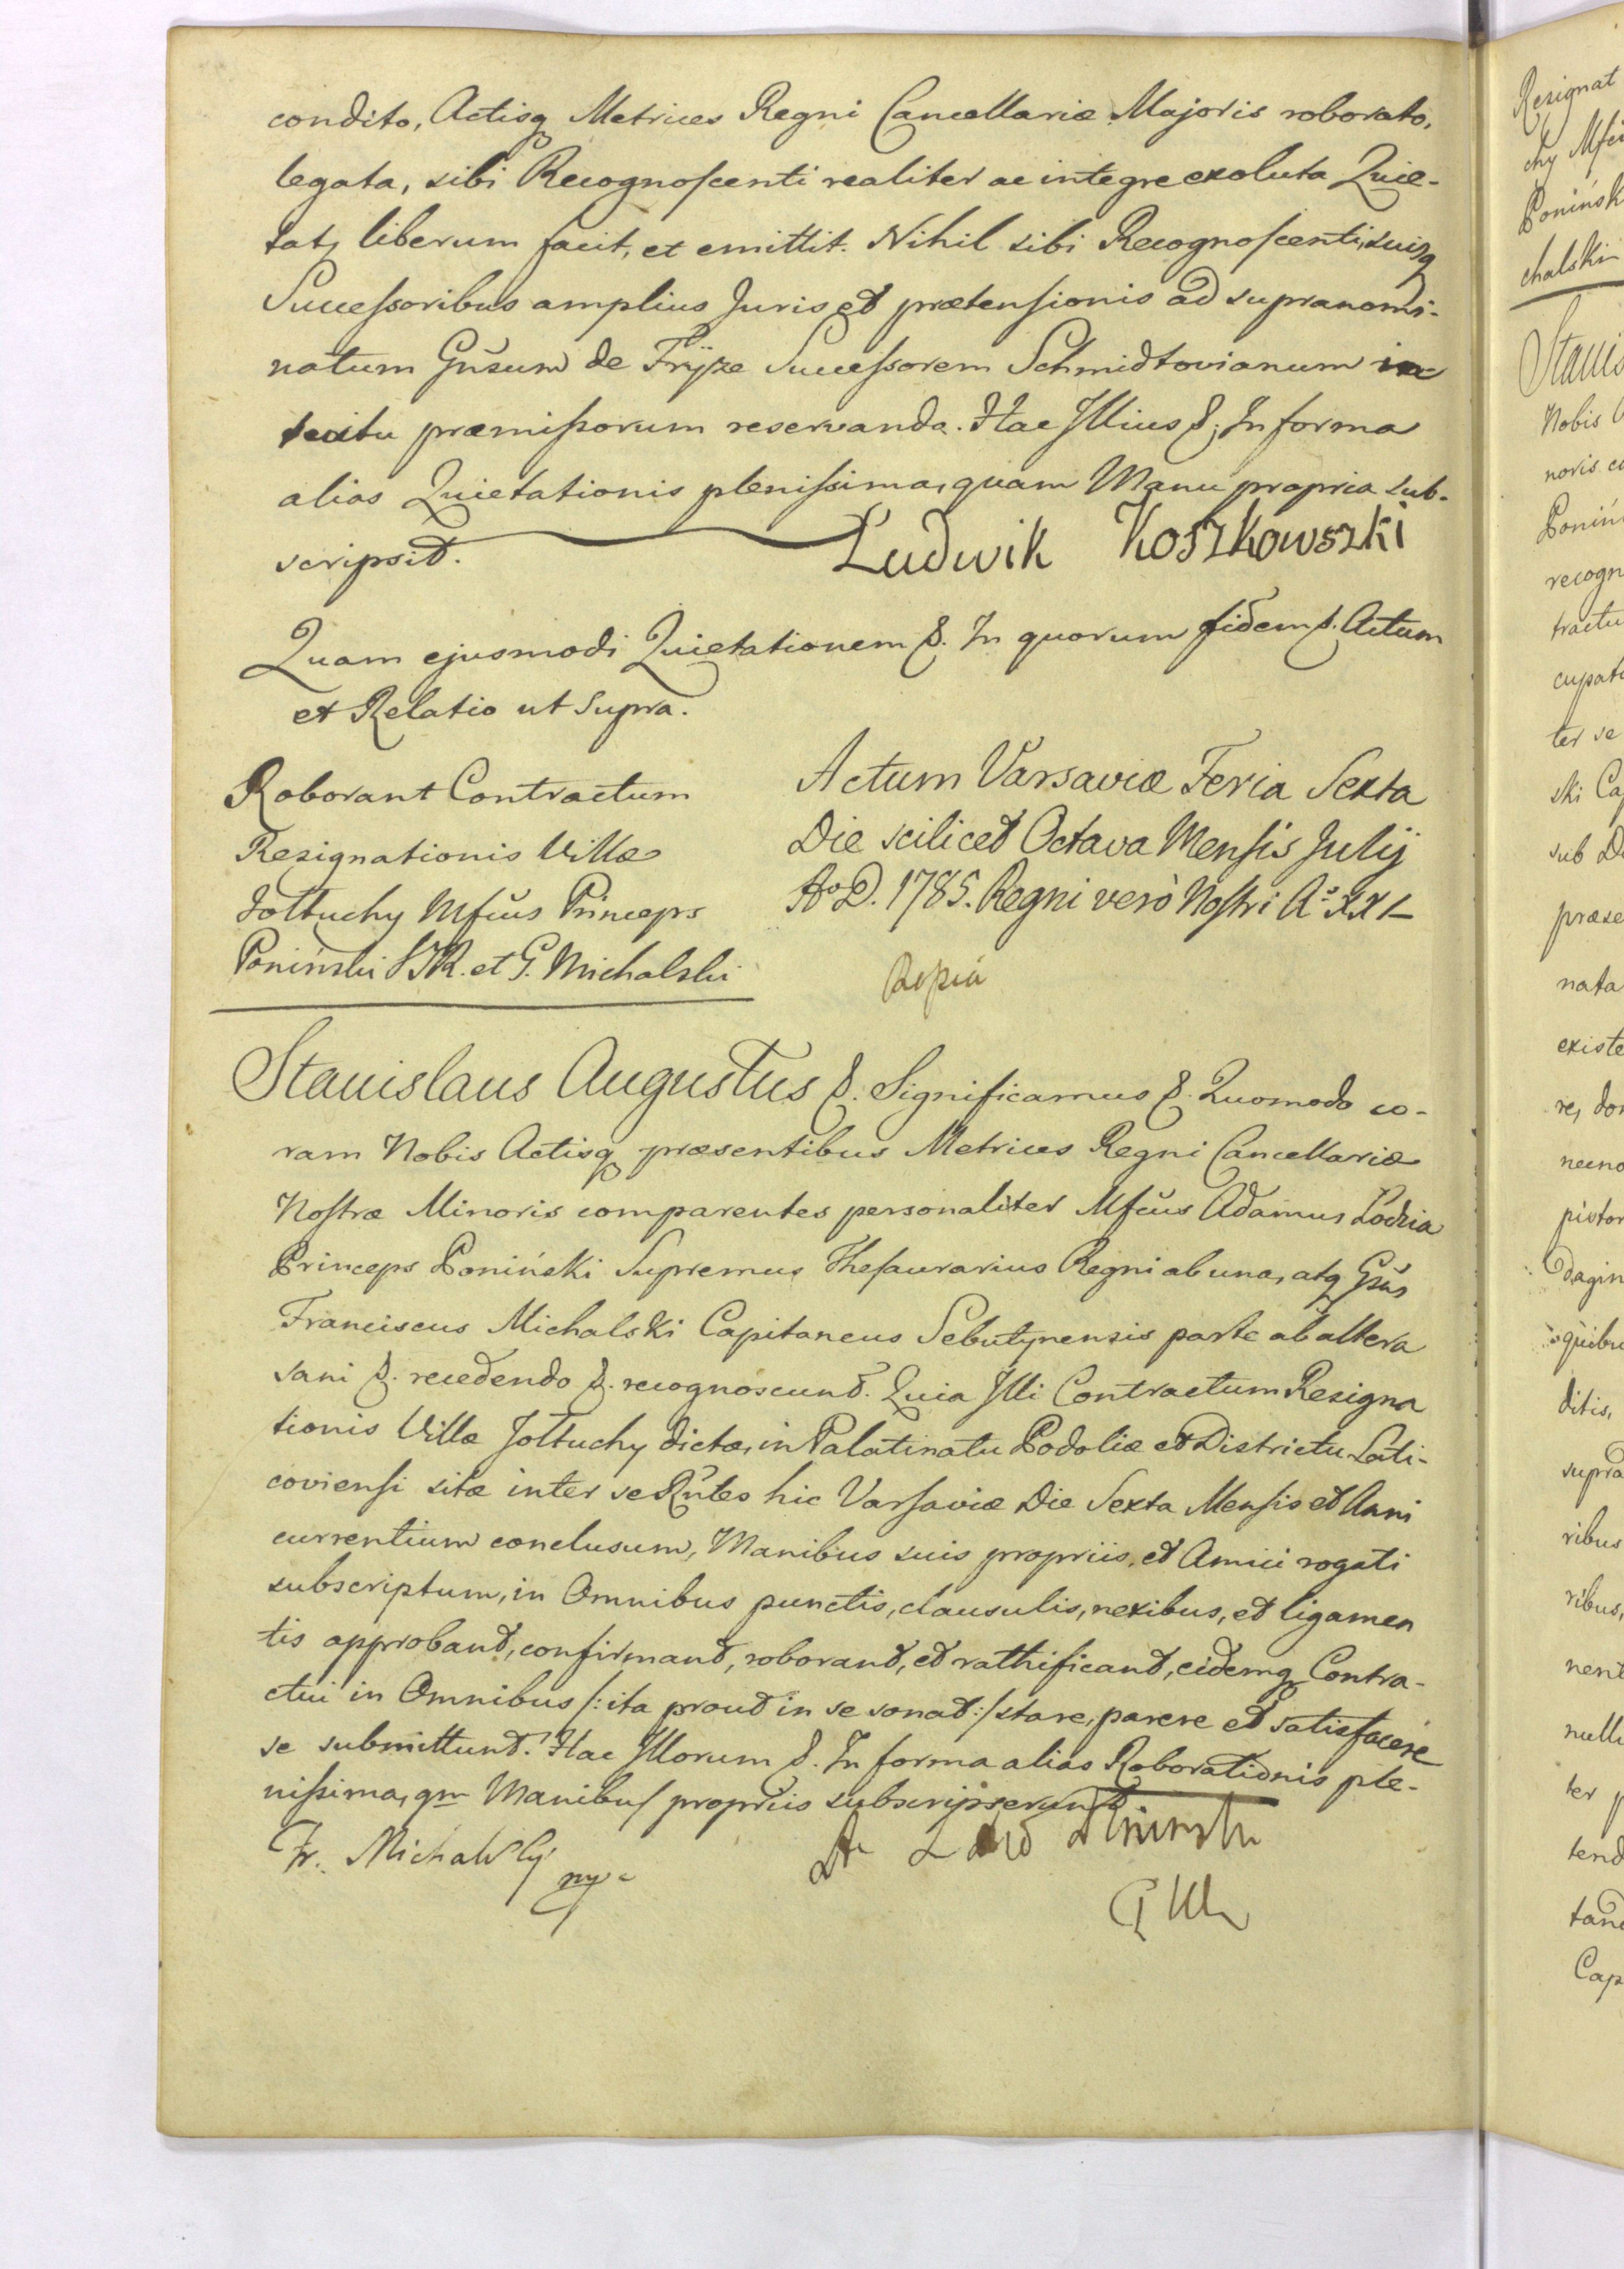 condito, Actisq Metrices Regni Cancellariæ Majoris roborato,
legata, sibi Recognoscenti realiter ac integre exoluta Quie-
tat, liberum facit, et emittit. Nihil sibi Recognoscenti, suisq
Successoribus amplius Juris et prætensionis ad supranomi-
natum Gñsum de Fryze Successorem Schmidtovianum in-
tuitu præmissorum reservando. Hac Illius &. In forma
alias Quietationis plenissima, quam Manu propria sub-
scripsit. Ludwik Koszkowszki
Quam ejusmodi Quietationem &. In quorum fidem &. Actum
et Relatio ut Supra.
Roborant Contractum
Resignationis Villæ
Jołtuchy Mfcus Princeps
Poniński STR. et G. Michalski
Actum Varsaviæ Feria Sexta
Die scilicet Octava Mensis Julij
Ao D. 1785. Regni verò Nostri Ao XXI
Stanislaus Augustus &. Significamus &. Quomodo co-
ram Nobis Actisq præsentibus Metrices Regni Cancellariæ
Nostræ Minoris comparentes personaliter Mfcus Adamus Lodzia
Princeps Poniński Supremus Thesaurarius Regni ab una, atq Gsus
Franciscus Michalski Capitaneus Sebutynensis parte ab altera
sani &. recedendo &. recognoscunt. Quia Illi Contractum Resigna
tionis Villæ Jołtuchy dictæ, in Palatinatu Podoliæ et Districtu Lati-
coviensi sitæ inter se Rñtes hic Varsaviæ Die Sexta Mensis et Anni
currentium conclusum, Manibus suis propriis, et Amici rogati
subscriptum, in Omnibus punctis, clausulis, nexibus, et ligamen
tis approbant, confirmant, roborant, et rathificant, eidemq Contra-
ctui in Omnibus /: ita prout in se sonat :/ stare, parere et satisfacere
se submittunt. Hac Illorum &. In forma alias Roborationis ple-
nissima, qm Manibus propriis subscripserunt
Fr. Michalsky